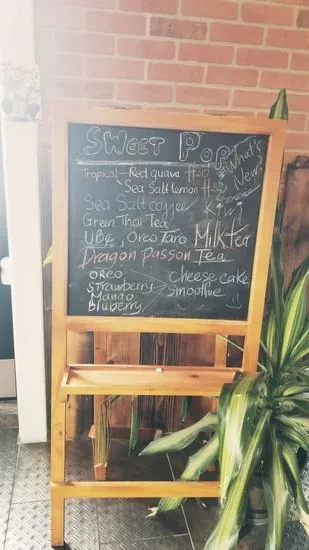 Sweet Pop
What's New!
Tropical - Red guava #20
Sea Salt lemon
Sea Salt coffee Kiwi
Green Thai Tea
UBe, Oreo Taro Milk Tea
Dragon Passon Tea
OREO
STrawberry
Mango
Bluberry
cheese cake
smoothie